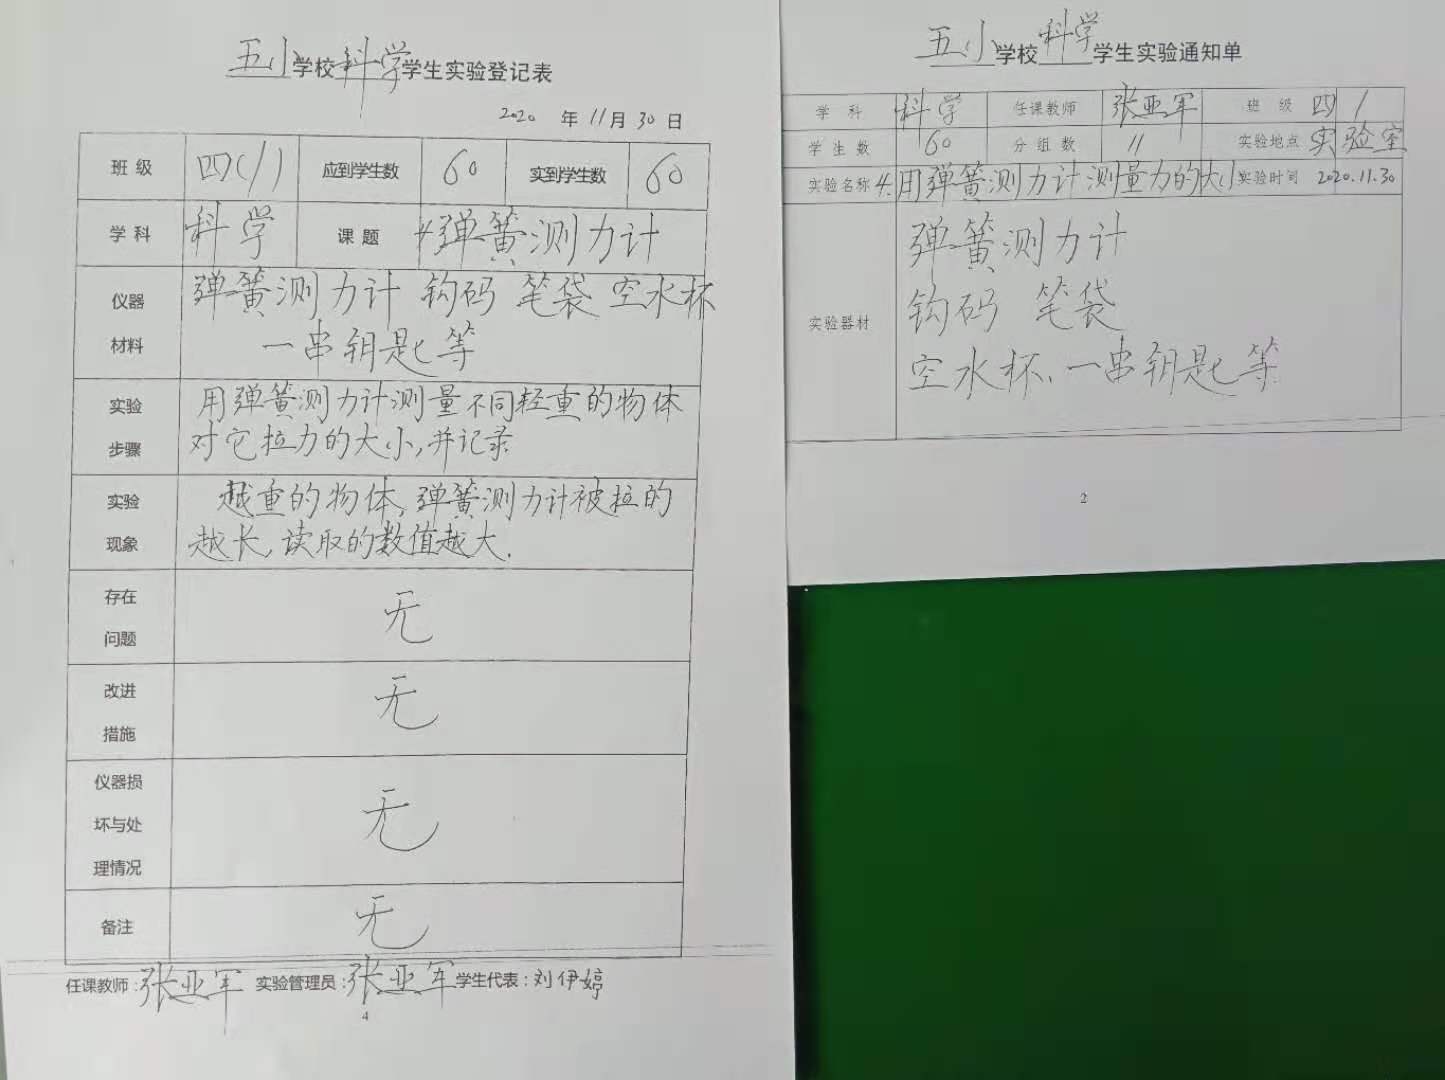 五小学校科学学生实验登记表
2020 年 11月 30日
班级 四(1) 应到学生数 60 实到学生数 60
学科 科学 课题 4.弹簧测力计
仪器材料 弹簧测力计 钩码 笔袋 空水杯
一串钥匙等
实验步骤 用弹簧测力计测量不同轻重的物体
对它拉力的大小,并记录
实验现象 越重的物体,弹簧测力计被拉的
越长,读取的数值越大.
存在问题 无
改进措施 无
仪器损坏与处理情况 无
备注 无
任课教师:张亚军 实验管理员:张亚军 学生代表:刘伊婷
4
五小学校科学学生实验通知单
学科 科学 任课教师 张亚军 班级 四 1
学生数 60 分组数 11 实验地点 实验室
实验名称 4.用弹簧测力计测量力的大小 实验时间 2020.11.30
实验器材 弹簧测力计
钩码 笔袋
空水杯、一串钥匙等
2